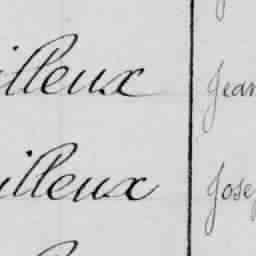 illeux Jean
illeux Jose